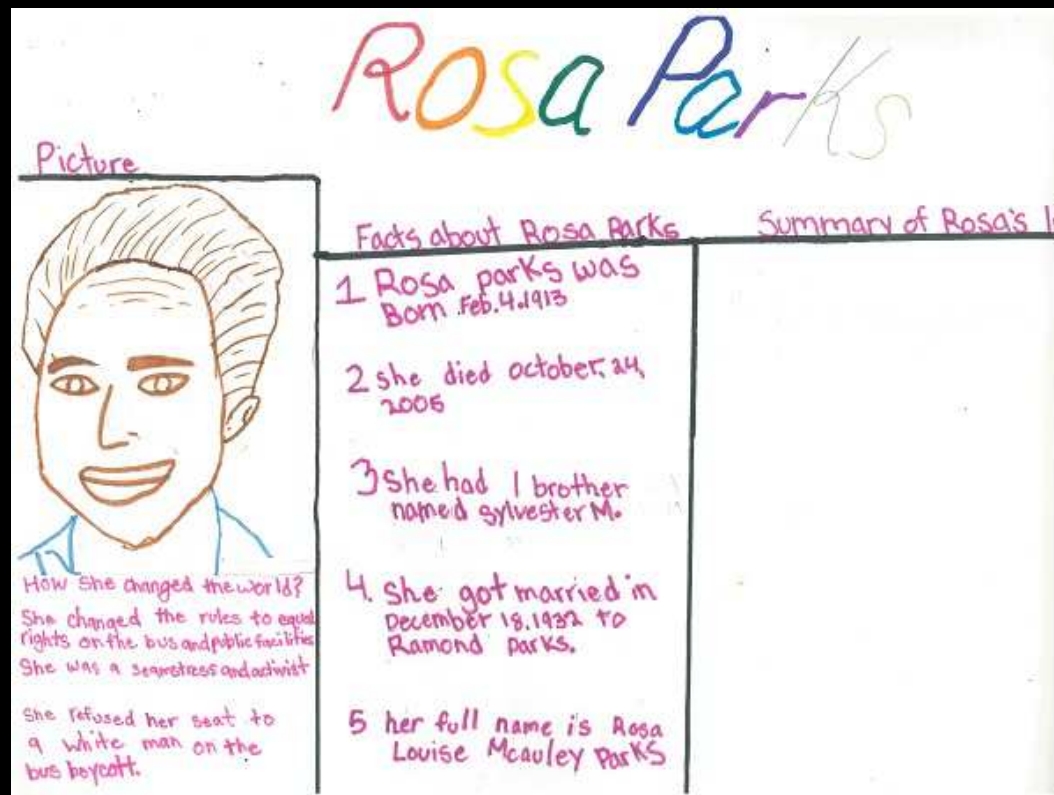 Rosa Parks
Picture
How She changed the world?
She changed the rules to equal
rights on the bus and public facilities
She was a seamstress and activist
She refused her seat to
a white man on the
bus boycott.
Facts about Rosa Parks
1 Rosa parks was
Born Feb.4.1913
2 she died october, 24,
2005
3 She had 1 brother
named sylvester M.
4. She got married in
December 18.1932 to
Ramond Parks.
5 her full name is Rosa
Louise Mcauley Parks
Summary of Rosa's